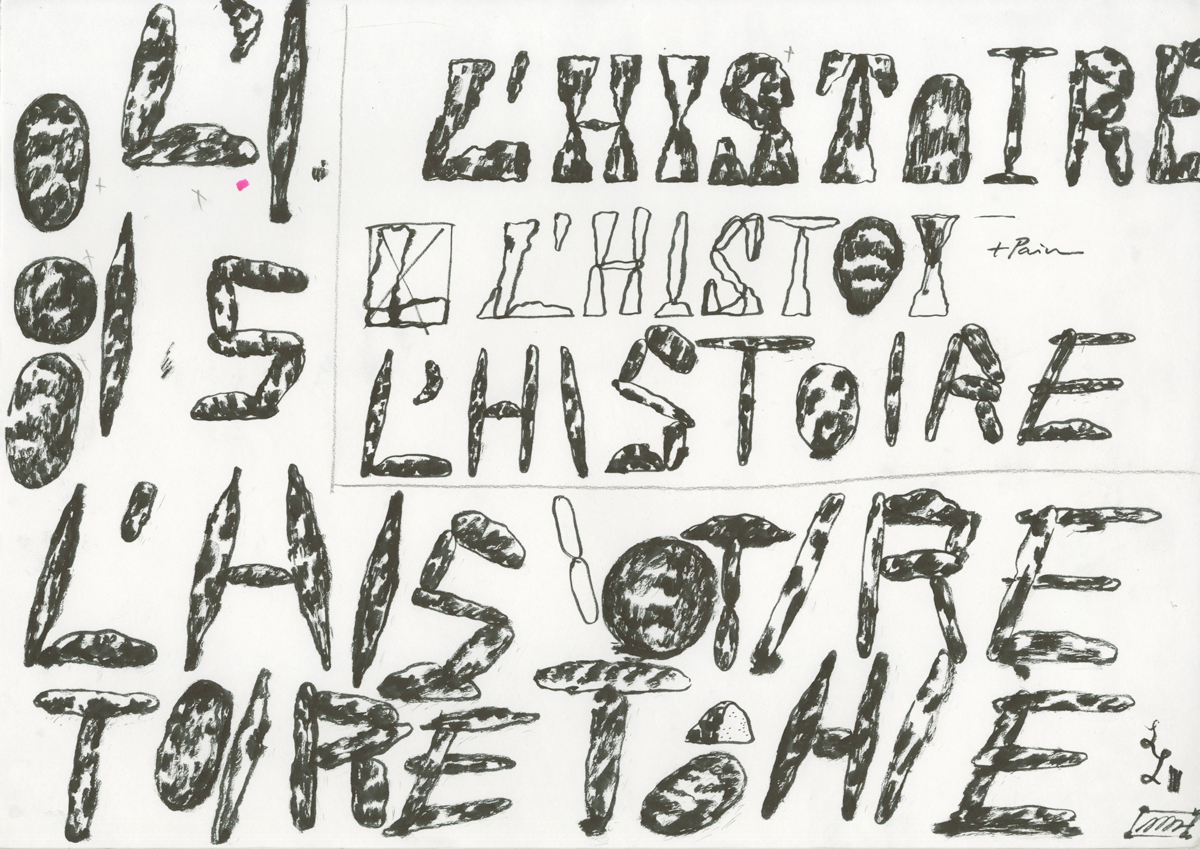 L'I
IS
L'HISTOIRE
L'HISTOI
+Pain
L'HISTOIRE
L'HIS\OTIRE
TOIRETOHIE